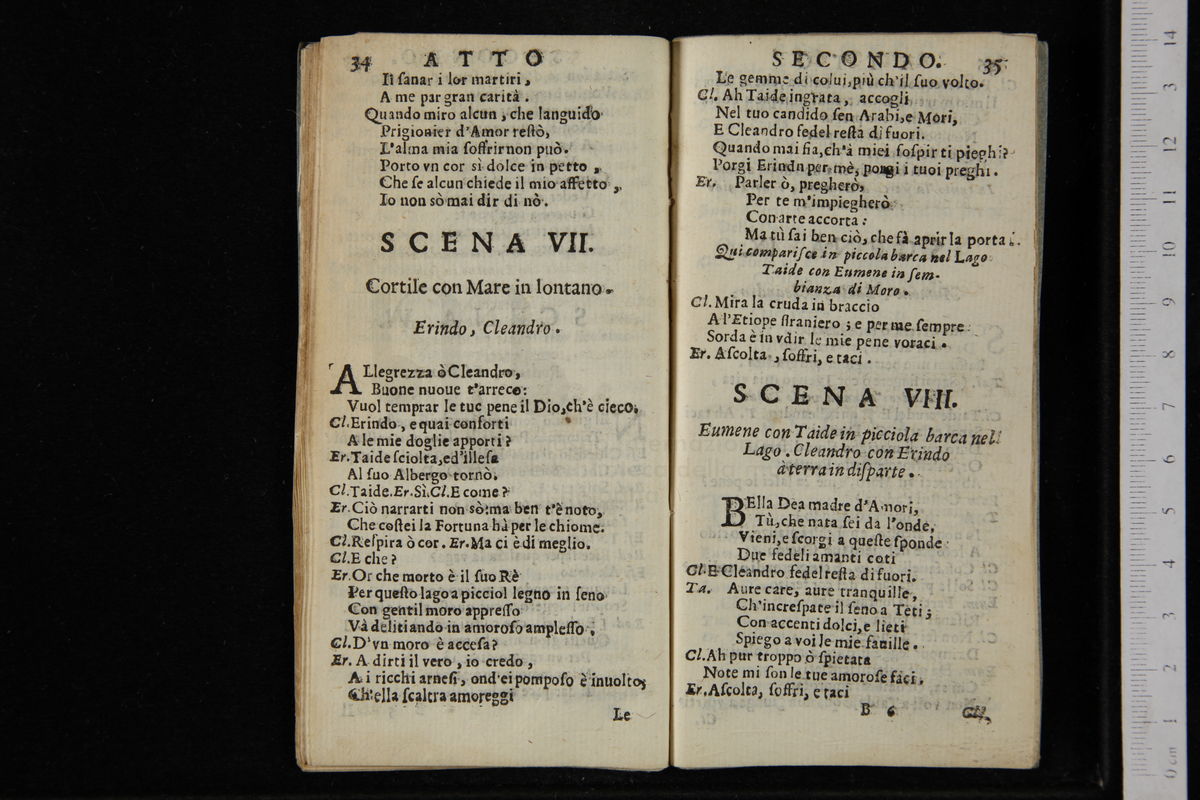 34 ATTO
Il ſanar i lor martiri,
A me par gran carità.
Quando miro alcun, che languido
Prigionier d'Amor reſtò,
L'alma mia ſoffrir non può.
Porto vn cor sì dolce in petto,
Che ſe alcun chiede il mio affetto,
Io non sò mai dir di nò.
SCENA VII.
Cortile con Mare in lontano.
Erindo, Cleandro.
ALlegrezza ò Cleandro,
Buone nuoue t'arreco:
Vuol temprar le tue pene il Dio, ch'è cieco.
Cl. Erindo, e quai conforti
A le mie doglie apporti?
Er. Taide ſciolta, ed'illeſa
Al ſuo Albergo tornò.
Cl. Taide. Er. Sì. Cl. E come?
Er. Ciò narrarti non sò: ma ben t'è noto,
Che coſtei la Fortuna hà per le chiome.
Cl. Reſpira ò cor. Er. Ma ci è di meglio.
Cl. E che?
Er. Or che morto è il ſuo Rè
Per queſto lago a picciol legno in ſeno
Con gentil moro appreſſo
Và delitiando in amoroſo ampleſſo.
Cl. D'vn moro è acceſa?
Er. A dirti il vero, io credo,
A i ricchi arneſi, ond'ei pompoſo è inuolto,
Ch'ella ſcaltra amoreggi
Le
SECONDO. 35
Le gemme di colui, più ch'il ſuo volto.
Cl. Ah Taide ingrata, accogli
Nel tuo candido ſen Arabi, e Mori,
E Cleandro fedel reſta di fuori.
Quando mai fia, ch'à miei ſoſpir ti pieghi?
Porgi Erindn per mè, porgi i tuoi preghi.
Er. Parlerò, pregherò,
Per te m'impiegherò
Con arte accorta:
Ma tù ſai ben ciò, che fà aprir la porta.
Qui compariſce in piccola barca nel Lago
Taide con Eumene in ſem-
bianza di Moro.
Cl. Mira la cruda in braccio
A l'Etiope ſtraniero; e per me ſempre
Sorda è in vdir le mie pene voraci.
Er. Aſcolta, ſoffri, e taci.
SCENA VIII.
Eumene con Taide in picciola barca nell
Lago. Cleandro con Erindo
à terra in diſparte.
BElla Dea madre d'Amori,
Tù, che nata ſei da l'onde,
Vieni, e ſcorgi a queſte ſponde
Due fedeli amanti coti
Cl. E Cleandro fedel reſta di fuori.
Ta. Aure care, aure tranquille,
Ch'increſpate il ſeno a Teti;
Con accenti dolci, e lieti
Spiego a voi le mie fauille.
Cl. Ah pur troppo ò ſpietata
Note mi ſon le tue amoroſe faci.
Er. Aſcolta, ſoffri, e taci
B 6